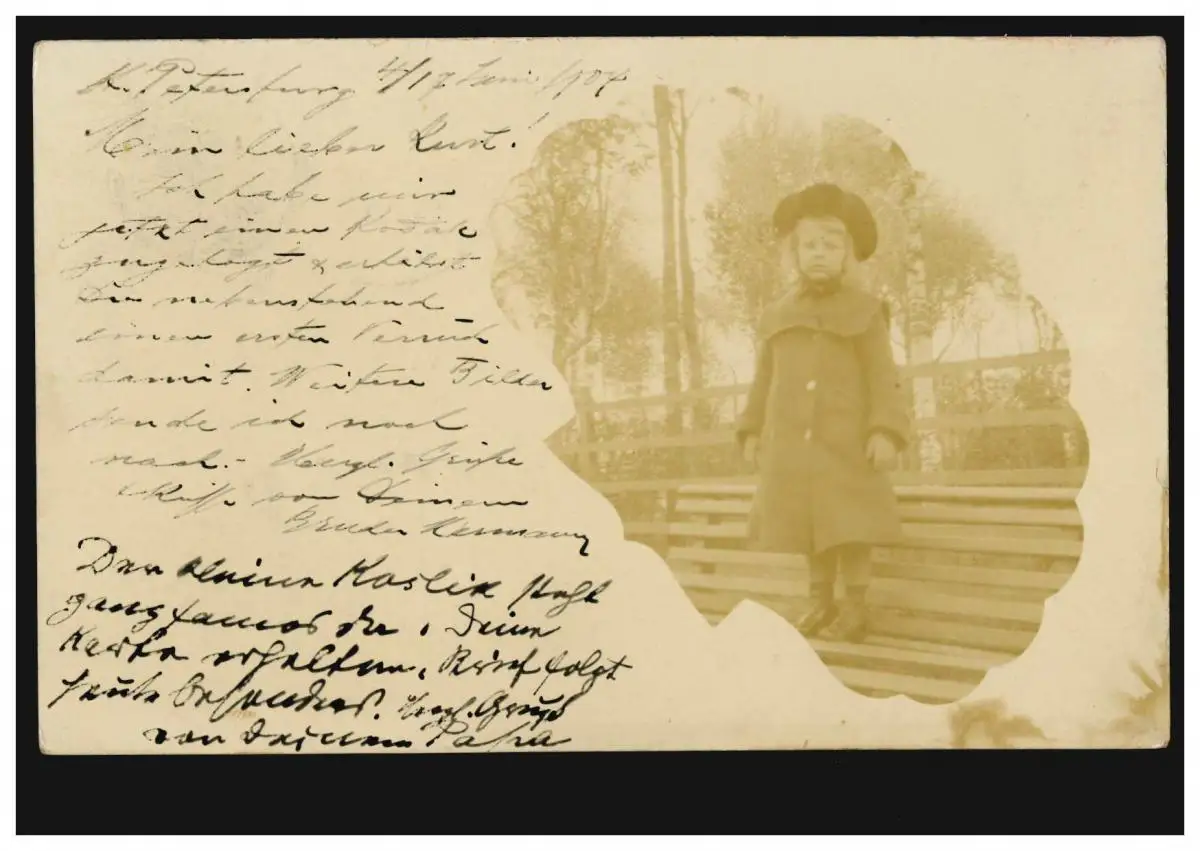 St. Petersburg 4/17 Juni 1904
Mein lieber Kurt!
Ich habe mir
jetzt einen Kodak
zugelegt & erhältst
Du nebenstehend
einen ersten Versuch
damit. Weitere Bilder
sende ich noch
nach. – Herzl. Grüße
& Küsse von Deinem
Bruder Hermann
Der kleine Kostik steht
ganz famos da. Deine
Karte erhalten. Brief folgt
heute besonders. Herzl. Gruß
von Deinem Papa